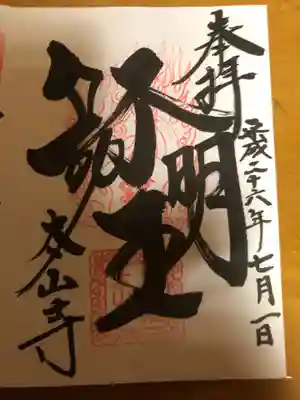 奉拝
平成二十六年七月一日
不動明王
本山寺